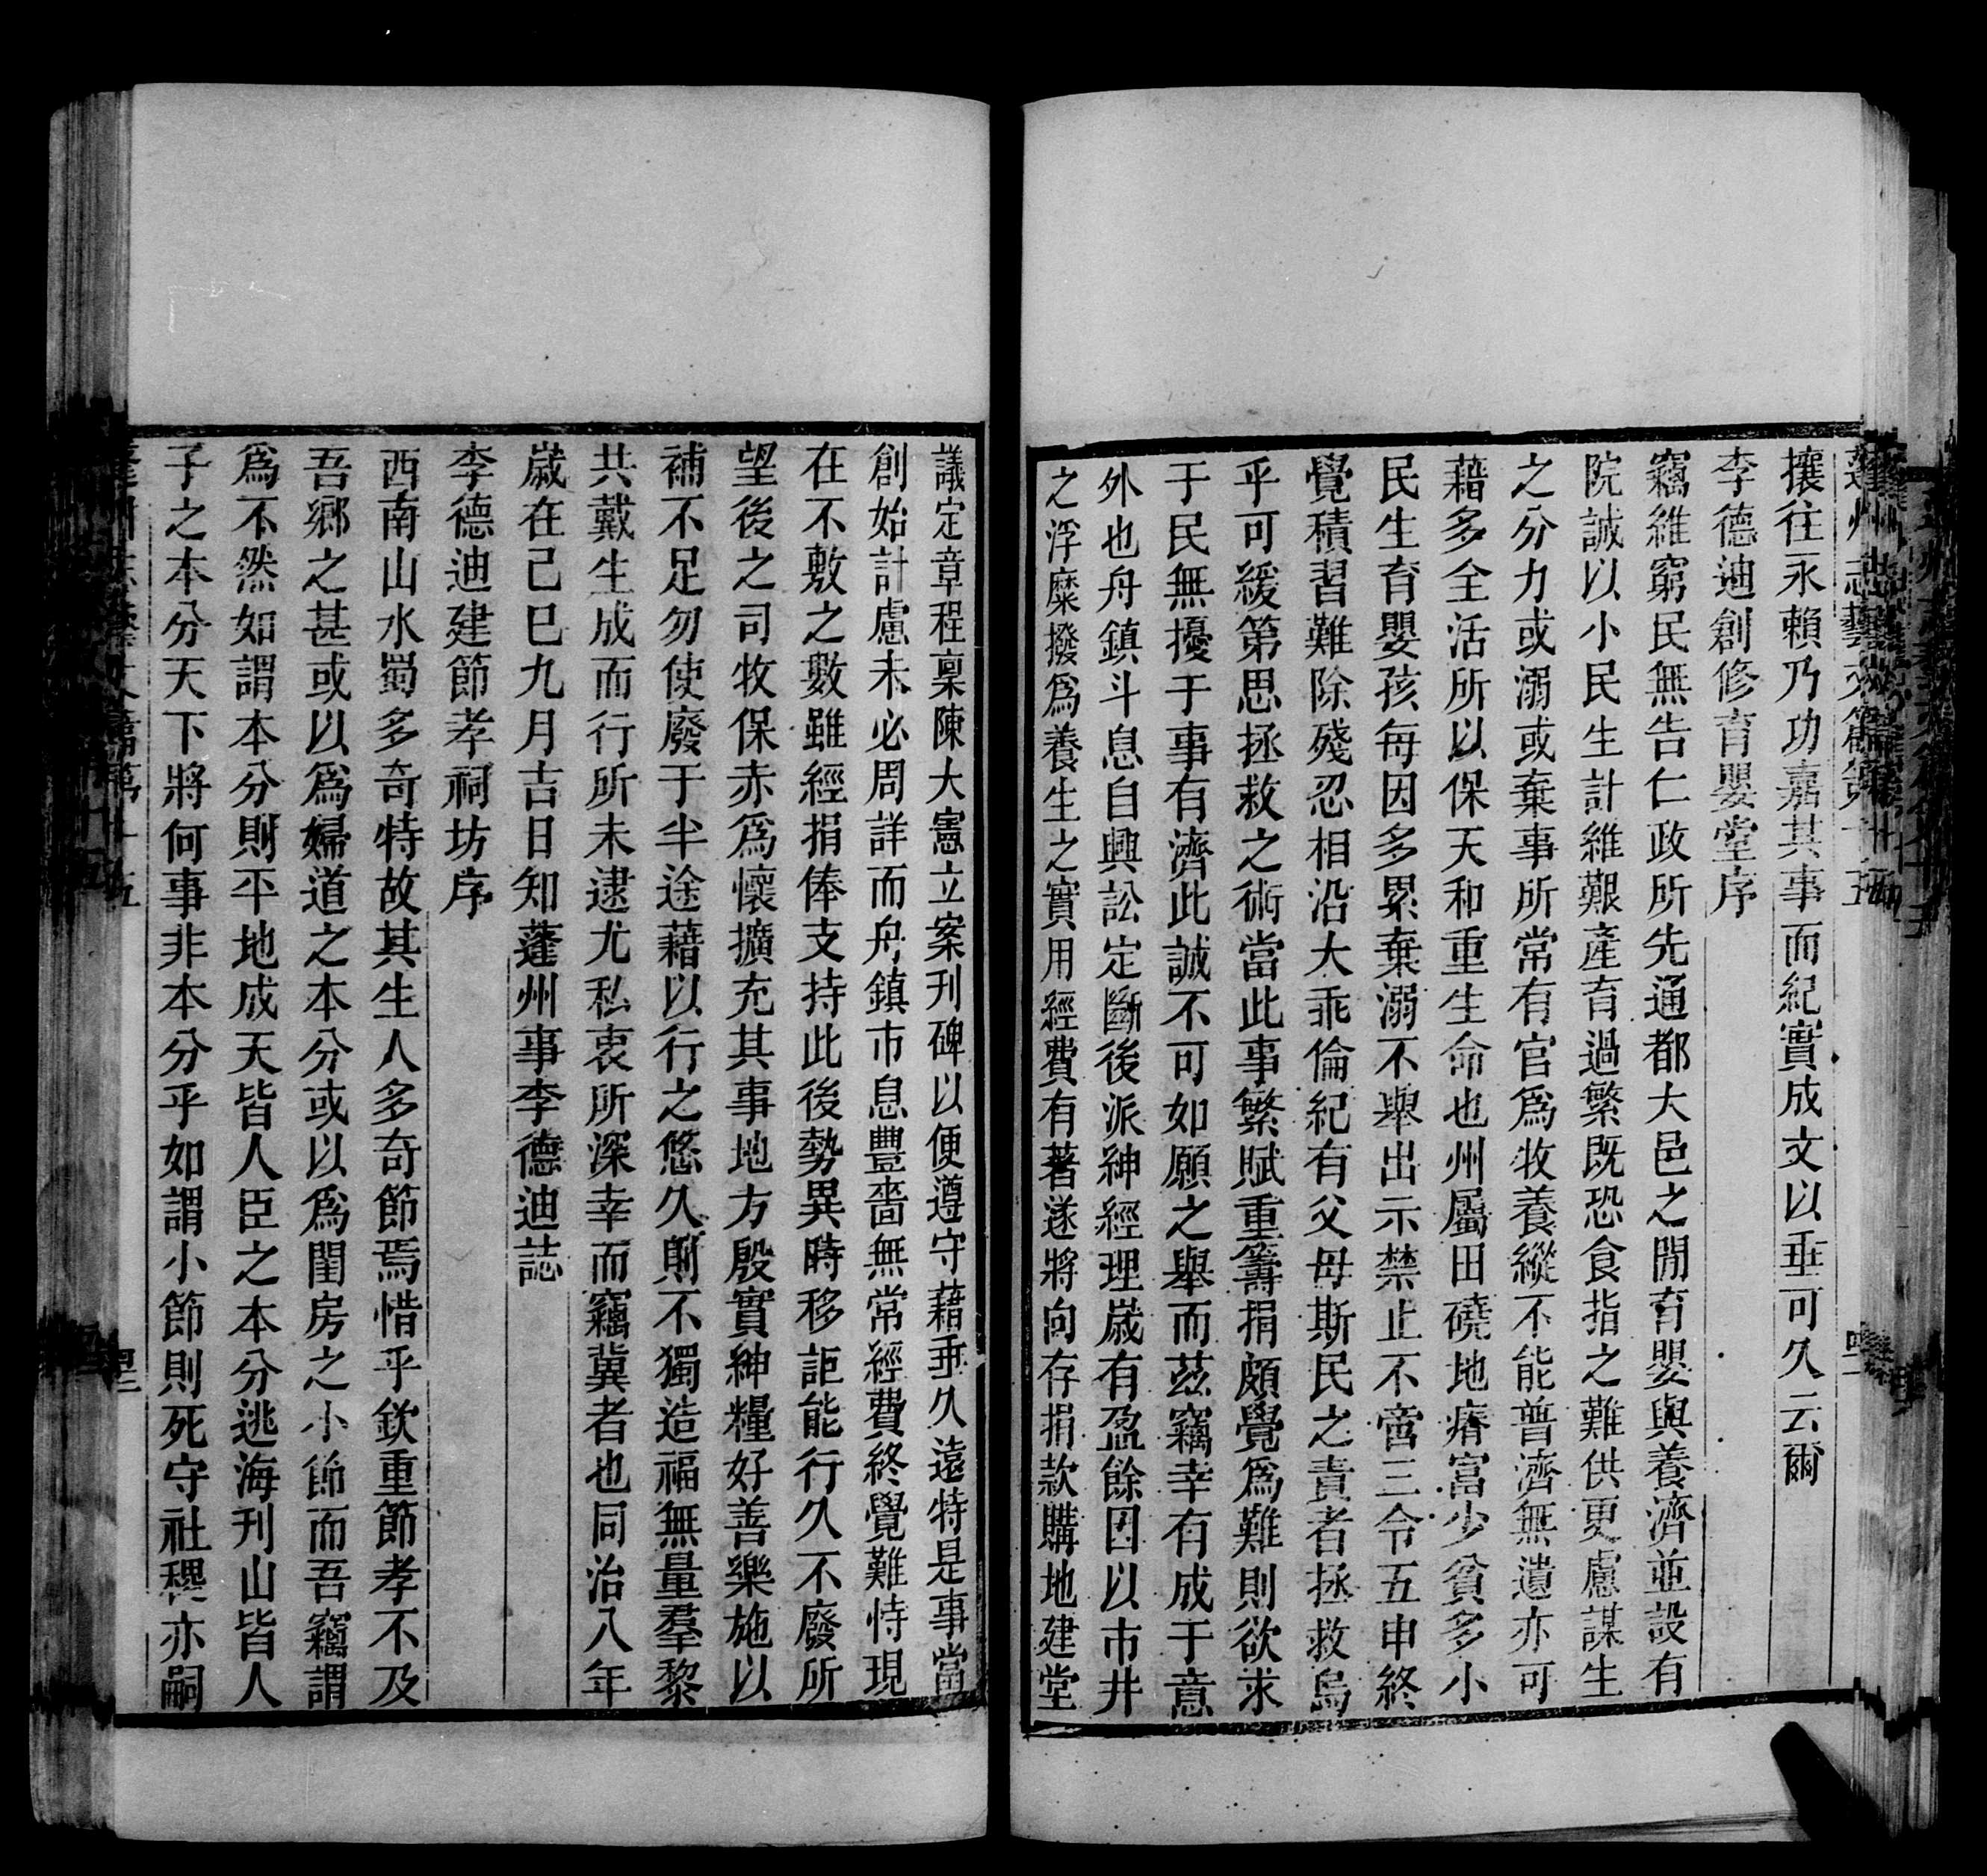 蓬州志藝文篇第十五
攘往永賴乃功嘉其事而紀實成文以垂可久云爾
李德迪創修育嬰堂序
竊維窮民無告仁政所先通都大邑之閒育嬰與養濟並設有
院誠以小民生計維艱產育過繁既恐食指之難供更慮謀生
之分力或溺或棄事所常有官爲牧養縱不能普濟無遺亦可
藉多全活所以保天和重生命也州屬田磽地瘠富少貧多小
民生育嬰孩每因多累棄溺不舉出示禁止不啻三令五申終
覺積習難除殘忍相沿大乖倫紀有父母斯民之責者拯救烏
乎可緩第思拯救之術當此事繁賦重籌捐頗覺爲難則欲求
于民無擾于事有濟此誠不可如願之舉而茲竊幸有成于意
外也舟鎮斗息自興訟定斷後派紳經理歲有盈餘因以市井
之浮糜撥爲養生之實用經費有著遂將向存捐款購地建堂
議定章程稟陳大憲立案刊碑以便遵守藉垂久遠特是事當
創始計慮未必周詳而舟鎮市息豐嗇無常經費終覺難恃現
在不敷之數雖經捐俸支持此後勢異時移詎能行久不廢所
望後之司牧保赤爲懷擴充其事地方殷實紳糧好善樂施以
補不足勿使廢于半途藉以行之悠久則不獨造福無量羣黎
共戴生成而行所未逮尤私衷所深幸而竊冀者也同治八年
歲在己巳九月吉日知蓬州事李德迪誌
李德迪建節孝祠坊序
西南山水蜀多奇特故其生人多奇節焉惜乎欽重節孝不及
吾鄉之甚或以爲婦道之本分或以爲閨房之小節而吾竊謂
爲不然如謂本分則平地成天皆人臣之本分逃海刊山皆人
子之本分天下將何事非本分乎如謂小節則死守社稷亦嗣